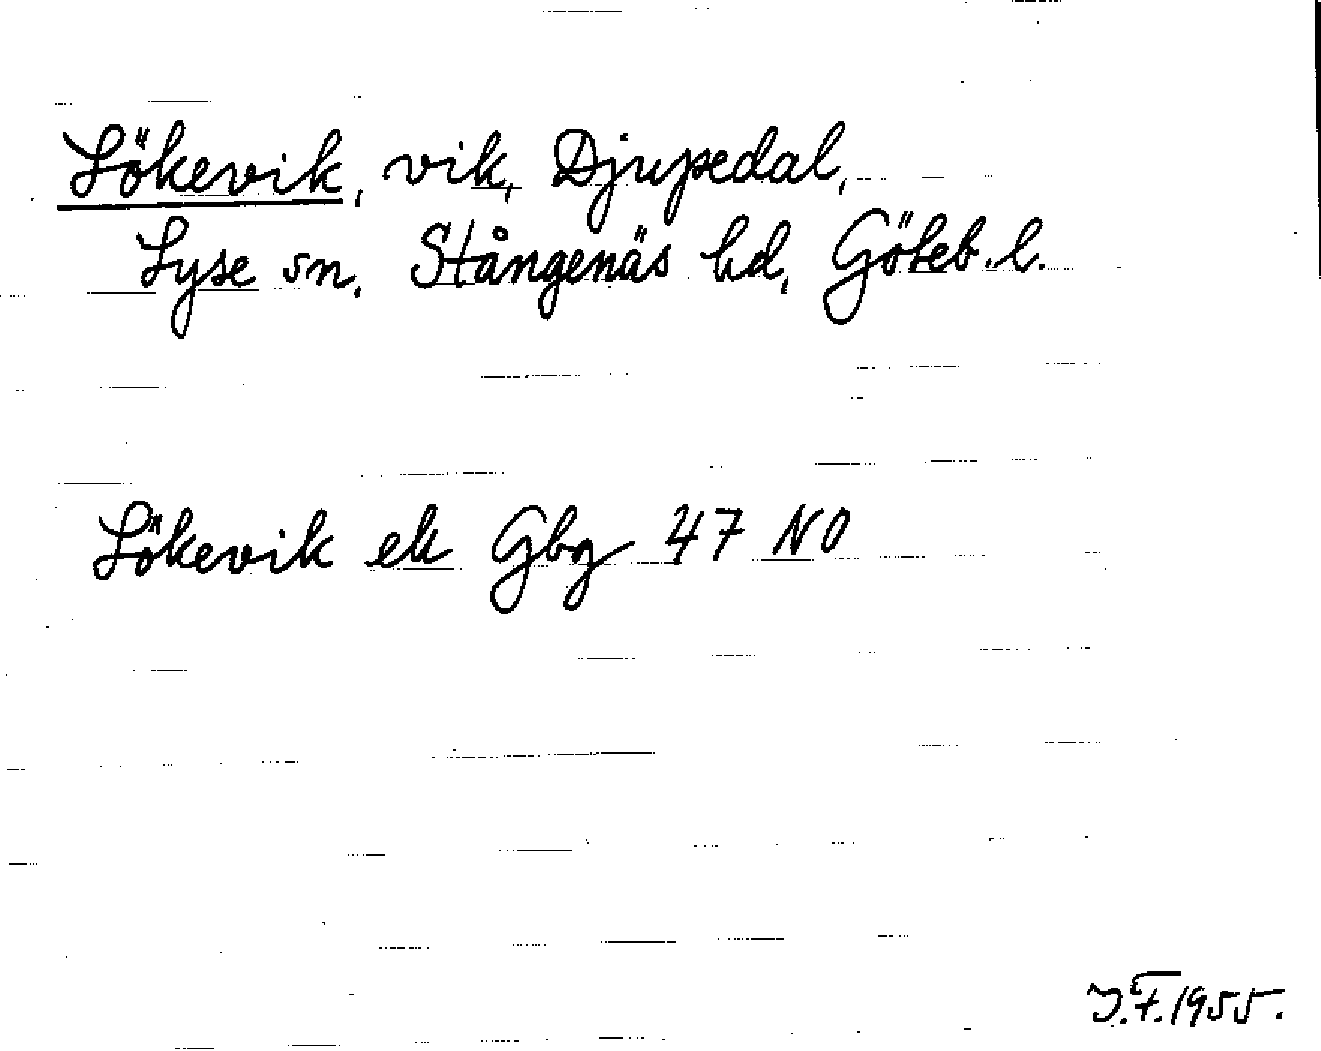 Lökevik, vik, Djupedal,
Lyse sn. Stångenäs hd, Göteb. l.
Lökevik ek Gbg 47 NO
J.F. 1955.